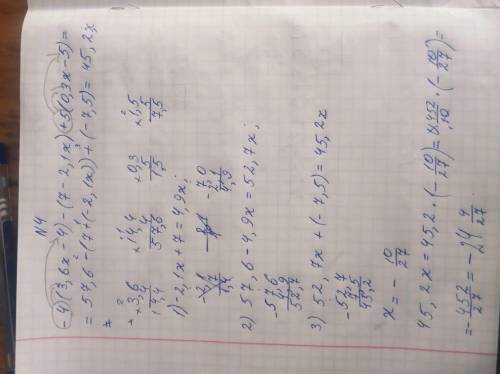 N4
-4(3,6x-4)-(7-2,1x)+5(0,3x-5)=
=57,6-(7+(-2,1x))+(-7,5)=45,2x;
3,6 14,4 0,3 1,5
4 4 5 5
14,4 57,6 1,5 7,5
1) -2,1x+7=4,9x;
-7,0
2,1
4,9
2) 57,6-4,9x=52,7x;
-57,6
4,9
52,7
3) 52,7x+(-7,5)=45,2x
-52,7
7,5
45,2
x=-10/27
45,2x=45,2·(-10/27)=452/10·(-10/27)=
=-452/27=-24 4/27